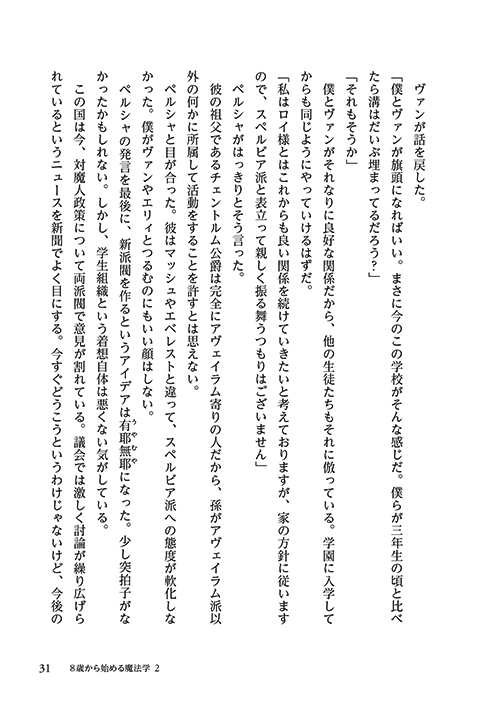 ヴァンが話を戻した。
「僕とヴァンが旗頭になればいい。まさに今のこの学校がそんな感じだ。僕らが三年生の頃と比べ
たら溝はだいぶ埋まってるだろう?」
「それもそうか」
僕とヴァンがそれなりに良好な関係だから、他の生徒たちもそれに倣っている。学園に入学して
からも同じようにやっていけるはずだ。
「私はロイ様とはこれからも良い関係を続けていきたいと考えておりますが、家の方針に従います
ので、スペルビア派と表立って親しく振る舞うつもりはございません」
ペルシャがはっきりとそう言った。
彼の祖父であるチェントルム公爵は完全にアヴェイラム寄りの人だから、孫がアヴェイラム派以
外の何かに所属して活動をすることを許すとは思えない。
ペルシャと目が合った。彼はマッシュやエベレストと違って、スペルビア派への態度が軟化しな
かった。僕がヴァンやエリィとつるむのにもいい顔はしない。
ペルシャの発言を最後に、新派閥を作るというアイデアは有耶無耶になった。少し突拍子がな
うやむや
かったかもしれない。しかし、学生組織という着想自体は悪くない気がしている。
この国は今、対魔人政策について両派閥で意見が割れている。議会では激しく討論が繰り広げら
れているというニュースを新聞でよく目にする。今すぐどうこうというわけじゃないけど、今後の
31 8歳から始める魔法学 2